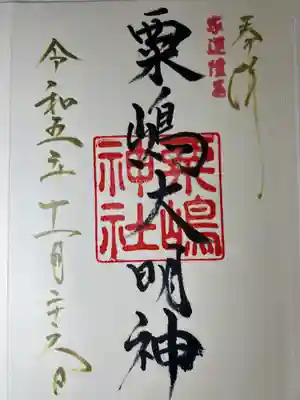 奉拝
家運隆昌
粟嶋大明神
粟嶋神社
令和五年十一月二十日